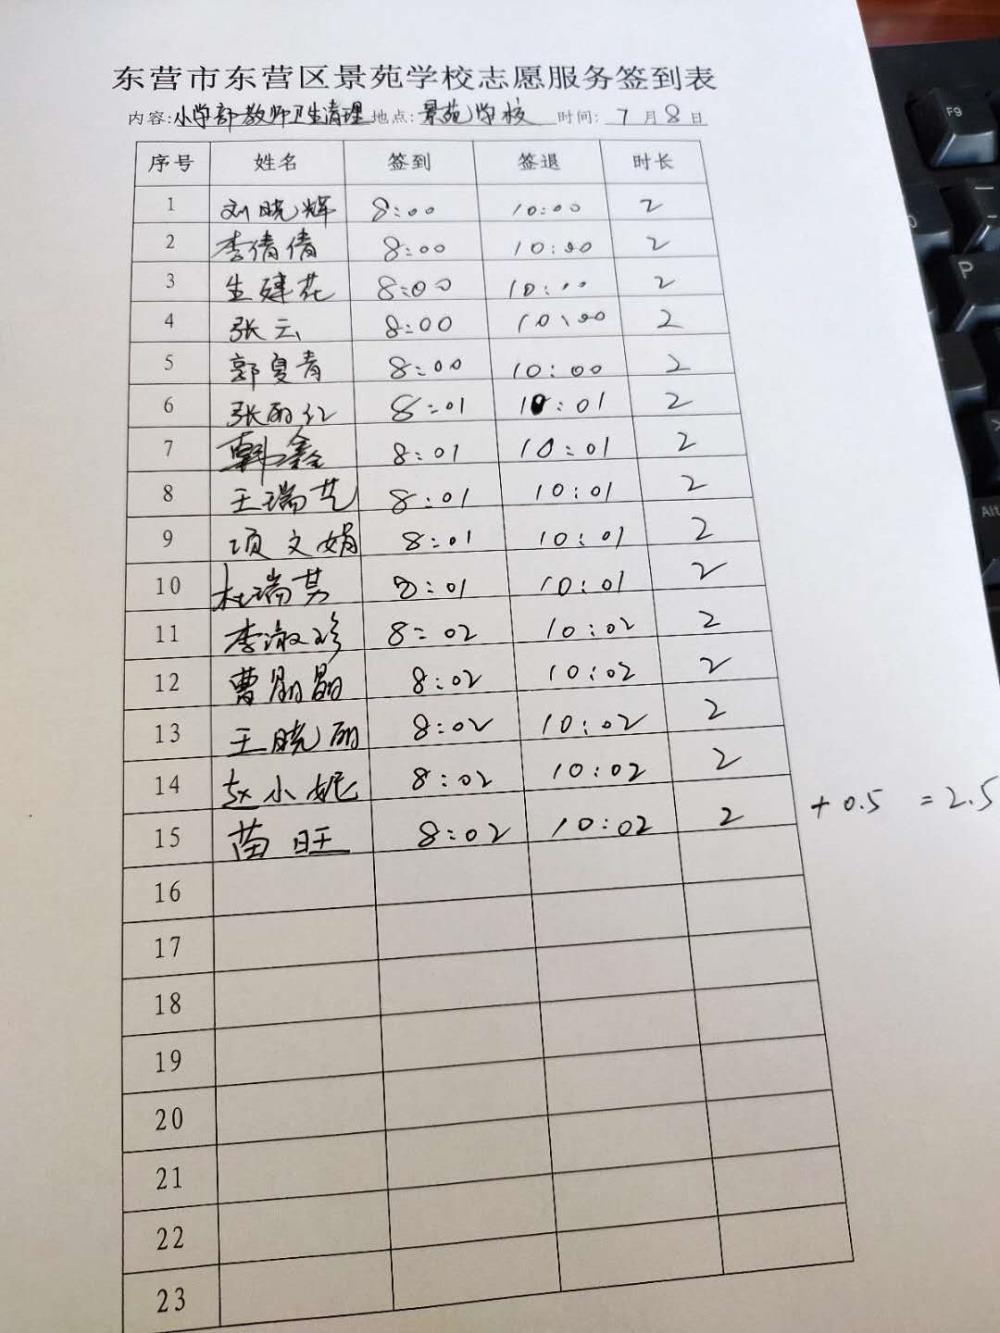 东营市东营区景苑学校志愿服务签到表
内容:小学部教师卫生清理 地点:景苑学校 时间: 7月8日
序号 姓名 签到 签退 时长
1 刘晓辉 8:00 10:00 2
2 李倩倩 8:00 10:00 2
3 生建花 8:00 10:00 2
4 张云 8:00 10:00 2
5 郭夏青 8:00 10:00 2
6 张丽红 8:01 10:01 2
7 韩鑫 8:01 10:01 2
8 王瑞芝 8:01 10:01 2
9 项文娟 8:01 10:01 2
10 杜瑞 8:01 10:01 2
11 李淑珍 8:02 10:02 2
12 曹晶 8:02 10:02 2
13 王晓丽 8:02 10:02 2
14 赵小妮 8:02 10:02 2
15 苗旺 8:02 10:02 2 +0.5 =2.5
16
17
18
19
20
21
22
23
F9
P
Alt